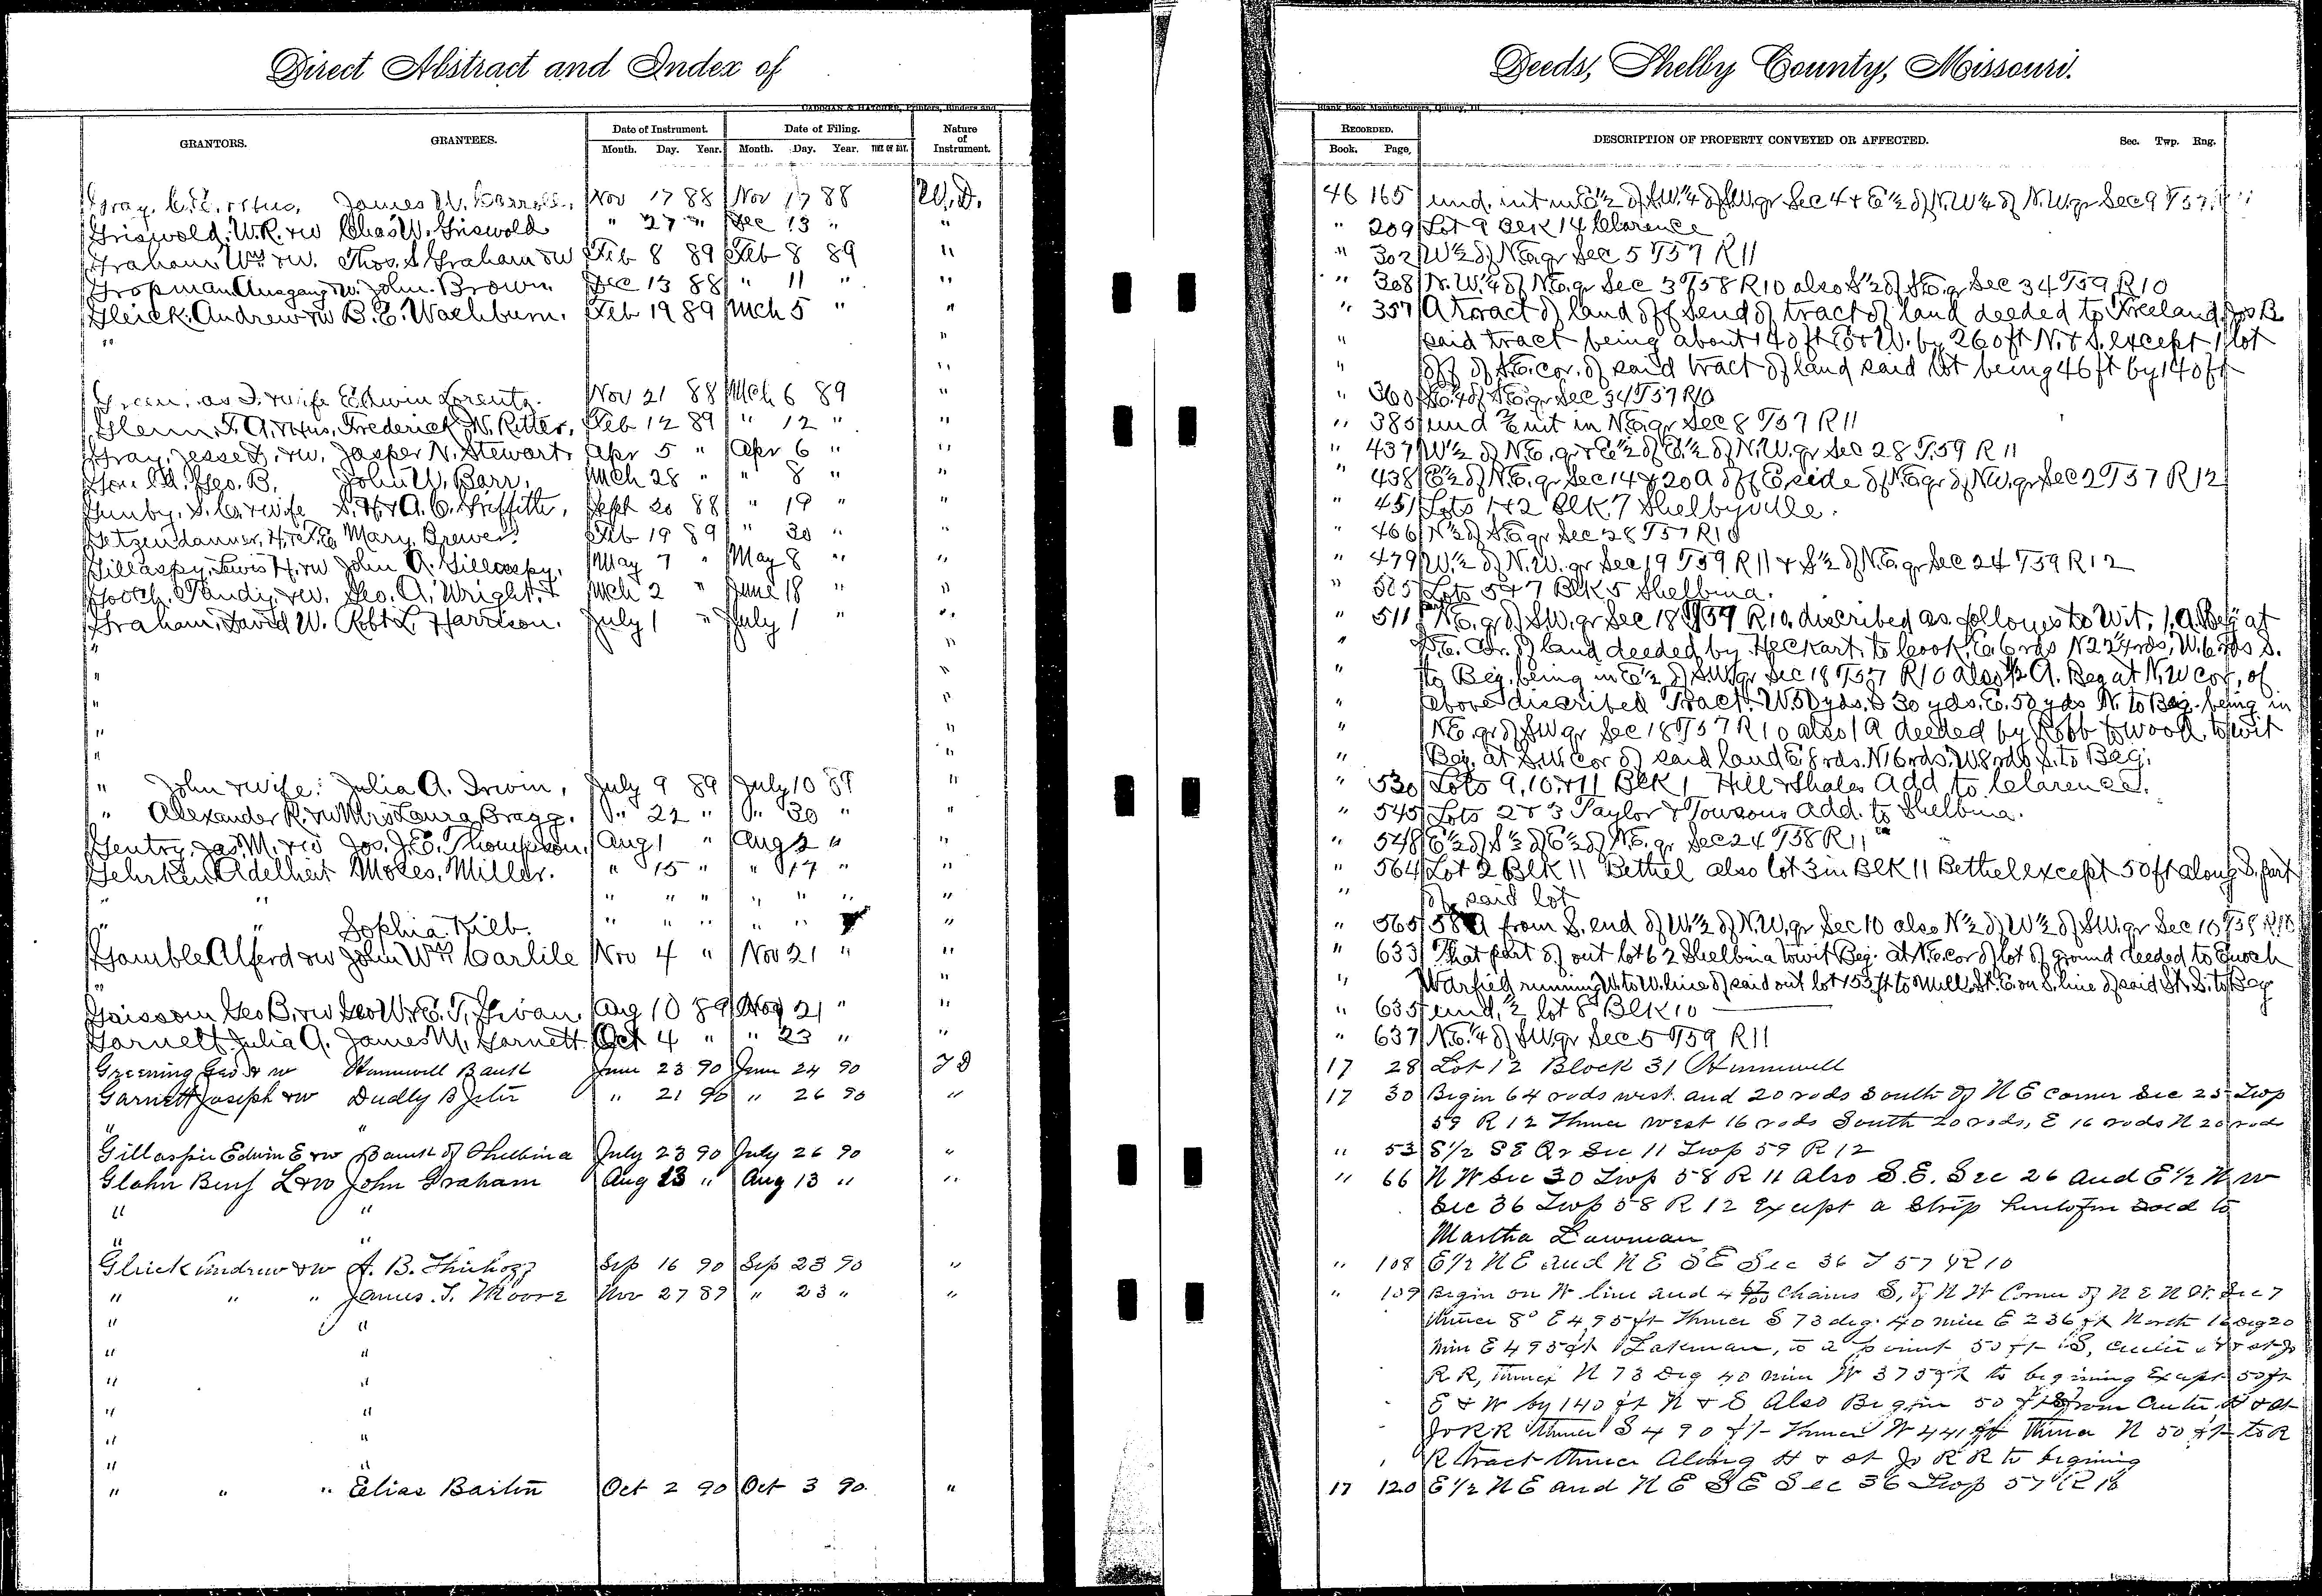 Direct Abstract and Index of
Deeds, Shelby County, Missouri.
CADOGAN & HATCHER, Printers, Binders and
Blank Book Manufacturers, Quincy, Ill.
GRANTORS. GRANTEES. Date of Instrument. Date of Filing. Nature of Instrument.
Month. Day. Year. Month. Day. Year. TIME OF DAY.
RECORDED. DESCRIPTION OF PROPERTY CONVEYED OR AFFECTED. Sec. Twp. Rng.
Book. Page,
Gray, James W. Nov 17 88 Nov 17 88 W.D. 46 165 und. int in E½ of S.W.¼ of S.W.qr Sec 4 & E½ of N.W¼ of N.W.qr Sec 9 T57
Griswold, W.R. &w Chas W. Griswold " 27 " Dec 13 " " " 209 Lot 9 Blk 14 Clarence
Graham Wm &w. Thos. S Graham &w Feb 8 89 Feb 8 89 " " 302 W½ of N.E.qr Sec 5 T57 R11
John Brown Dec 13 88 " 11 " " " 308 N.W.¼ of N.E.qr Sec 3 T58 R10 also S½ of S.E.qr Sec 34 T59 R10
Gleick, Andrew &w B. E. Washburn. Feb 19 89 Mch 5 " " " 357 A tract of land off S end of tract of land deeded to Freeland Jos B
" " " said tract being about 140 ft E & W. by 260 ft N. & S. except 1 lot
" " off of S.E. cor. of said tract of land said lot being 46 ft by 140 ft
Green, as T. & wife Edwin Lorentz. Nov 21 88 Mch 6 89 " " 360 S.E.¼ of S.E.qr Sec 34 T57 R10
Glenn, T. A. & Hus, Frederick N. Ritter, Feb 12 89 " 12 " " " 385 und int in N.E.qr Sec 8 T57 R11
Gray, Jesse D. &w. Jasper N. Stewart, Apr 5 " Apr 6 " " " 437 W½ of N.E.qr & E½ of E½ of N.W.qr Sec 28 T.59 R11
Geo. B. John W. Barr, Mch 28 " " 8 " " " 438 E½ of N.E.qr Sec 14 & 20 A off E side of N.E.qr of N.W.qr Sec 2 T57 R12
Gunby, S. C. & wife S. H. & A. C. Griffith, Sept 20 88 " 19 " " " 451 Lots 1 & 2 Blk 7 Shelbyville.
Getzendanner, H. Mary Brewer. Feb 19 89 " 30 " " " 466 N½ of S.E.qr Sec 28 T57 R10
Gillaspy, Lewis H. &w John A. Gillaspy. May 7 " May 8 " " " 479 W.½ of N.W.qr Sec 19 T59 R11 & S½ of N.E.qr Sec 24 T59 R12
Gooch, Tandy &w. Geo. A. Wright, Mch 2 " June 18 " " " 505 Lots 5 & 7 Blk 5 Shelbina.
Graham, David W. Robt L. Harrison. July 1 " July 1 " " " 511 N.E.qr of S.W.qr Sec 18 T57 R10 discribed as follows to Wit, 1 A. Beg at
" " " S.E. Cor. of land deeded by Heckart, to Cook, E. 6 rds N 22¾ rds, W. 6 rds S.
" " " to Beg. being in E½ of S.W.qr Sec 18 T57 R10 also ½ A. Beg at N.W cor, of
" " " above discribed Tract, W. 50 yds. S 30 yds. E. 50 yds N. to Beg. being in
" " " N.E.qr of S.W qr Sec 18 T57 R10 also 1 A deeded by Robb to Wood, to wit
" " Beg. at S.W. Cor of said land E 8 rds. N 16 rds. W 8 rds S. to Beg.
" John & wife: Julia A. Irwin, July 9 89 July 10 89 " " 530 Lots 9, 10, & 11 Blk 1 Hill & Hales Add to Clarence.
" Alexander R. &w Mrs Laura Bragg. " 22 " " 30 " " " 545 Lots 2 & 3 Taylor & Towsons Add. to Shelbina.
Gentry, Jas. M. &w Jos. J. E. Thompson. Aug 1 " Aug 2 " " " 548 E½ of S½ of E½ of N.E.qr Sec 24 T58 R11
Gehrken Adelheit Moses, Miller. " 15 " " 17 " " " 564 Lot 2 Blk 11 Bethel also lot 3 in Blk 11 Bethel except 50 ft along S. part
" " " " " " " " " " of said lot
" " Sophia Kilb. " " " " " " " 565 58 A from S. end of W½ of N.W.qr Sec 10 also N½ of W½ of S.W.qr Sec 10 T58 R10
Gamble Alferd &w John Wm Carlile Nov 4 " Nov 21 " " " 633 That part of out lot 62 Shelbina to wit Beg. at N.E. cor of lot of ground deeded to Enoch
" " " Warfield running W. to W. line of said out lot 153 ft to Mill St. E. on S. line of said St. S. to Beg
Gaisson Geo B. &w Geo W. & E. T. Swan, Aug 10 89 Nov 21 " " " 635 und. ½ lot 8 Blk 10
Garnett Julia A. James M. Garnett Oct 4 " " 23 " " " 637 N.E.¼ of S.W.qr Sec 5 T59 R11
Greening Geo & w Hunnewell Bank June 23 90 June 24 90 T D 17 28 Lot 12 Block 31 Hunnewell
Garnett Joseph &w Dudly B Jeter " 21 90 " 26 90 " 17 30 Begin 64 rods west and 20 rods South of N E Corner Sec 25 Twp
" " 59 R 12 Thence west 16 rods South 20 rods, E 16 rods N 20 rods
Gillaspie Edwin E &w Bank of Shelbina July 23 90 July 26 90 " " 53 S½ S E Qr Sec 11 Twp 59 R 12
Glahn Benj L &w John Graham Aug 13 " Aug 13 " " " 66 N W Sec 30 Twp 58 R 11 Also S.E. Sec 26 and E½ N w
" " Sec 36 Twp 58 R 12 Except a Strip heretofore sold to
" " Martha Lawman
Gleick Andrew &w A. B. Sep 16 90 Sep 23 90 " " 108 E½ N E and N E S E Sec 36 T 57 R 10
" " " James. T. Moore Nov 27 89 " 23 " " " 109 Begin on W line and 4 67/100 Chains S, of N W Corner of N E N W. Sec 7
" " thence 8° E 495 ft thence S 73 deg. 40 min E 236 ft North 16 Deg 20
" " Min E 495 ft Lakenan, to a point 50 ft S, center H & St Jo
" " R R, thence N 73 Deg 40 min W 375 ft to begining Except 50 ft
" " E & W by 140 ft N & S Also Begin 50 ft S from center H & St
" " Jo R R thence S 490 ft thence W 441 ft thence N 50 ft to R
" " R tract thence Along H & St Jo R R to begining
" " " Elias Bastin Oct 2 90 Oct 3 90. " 17 120 E½ N E and N E S E Sec 36 Twp 57 R 10